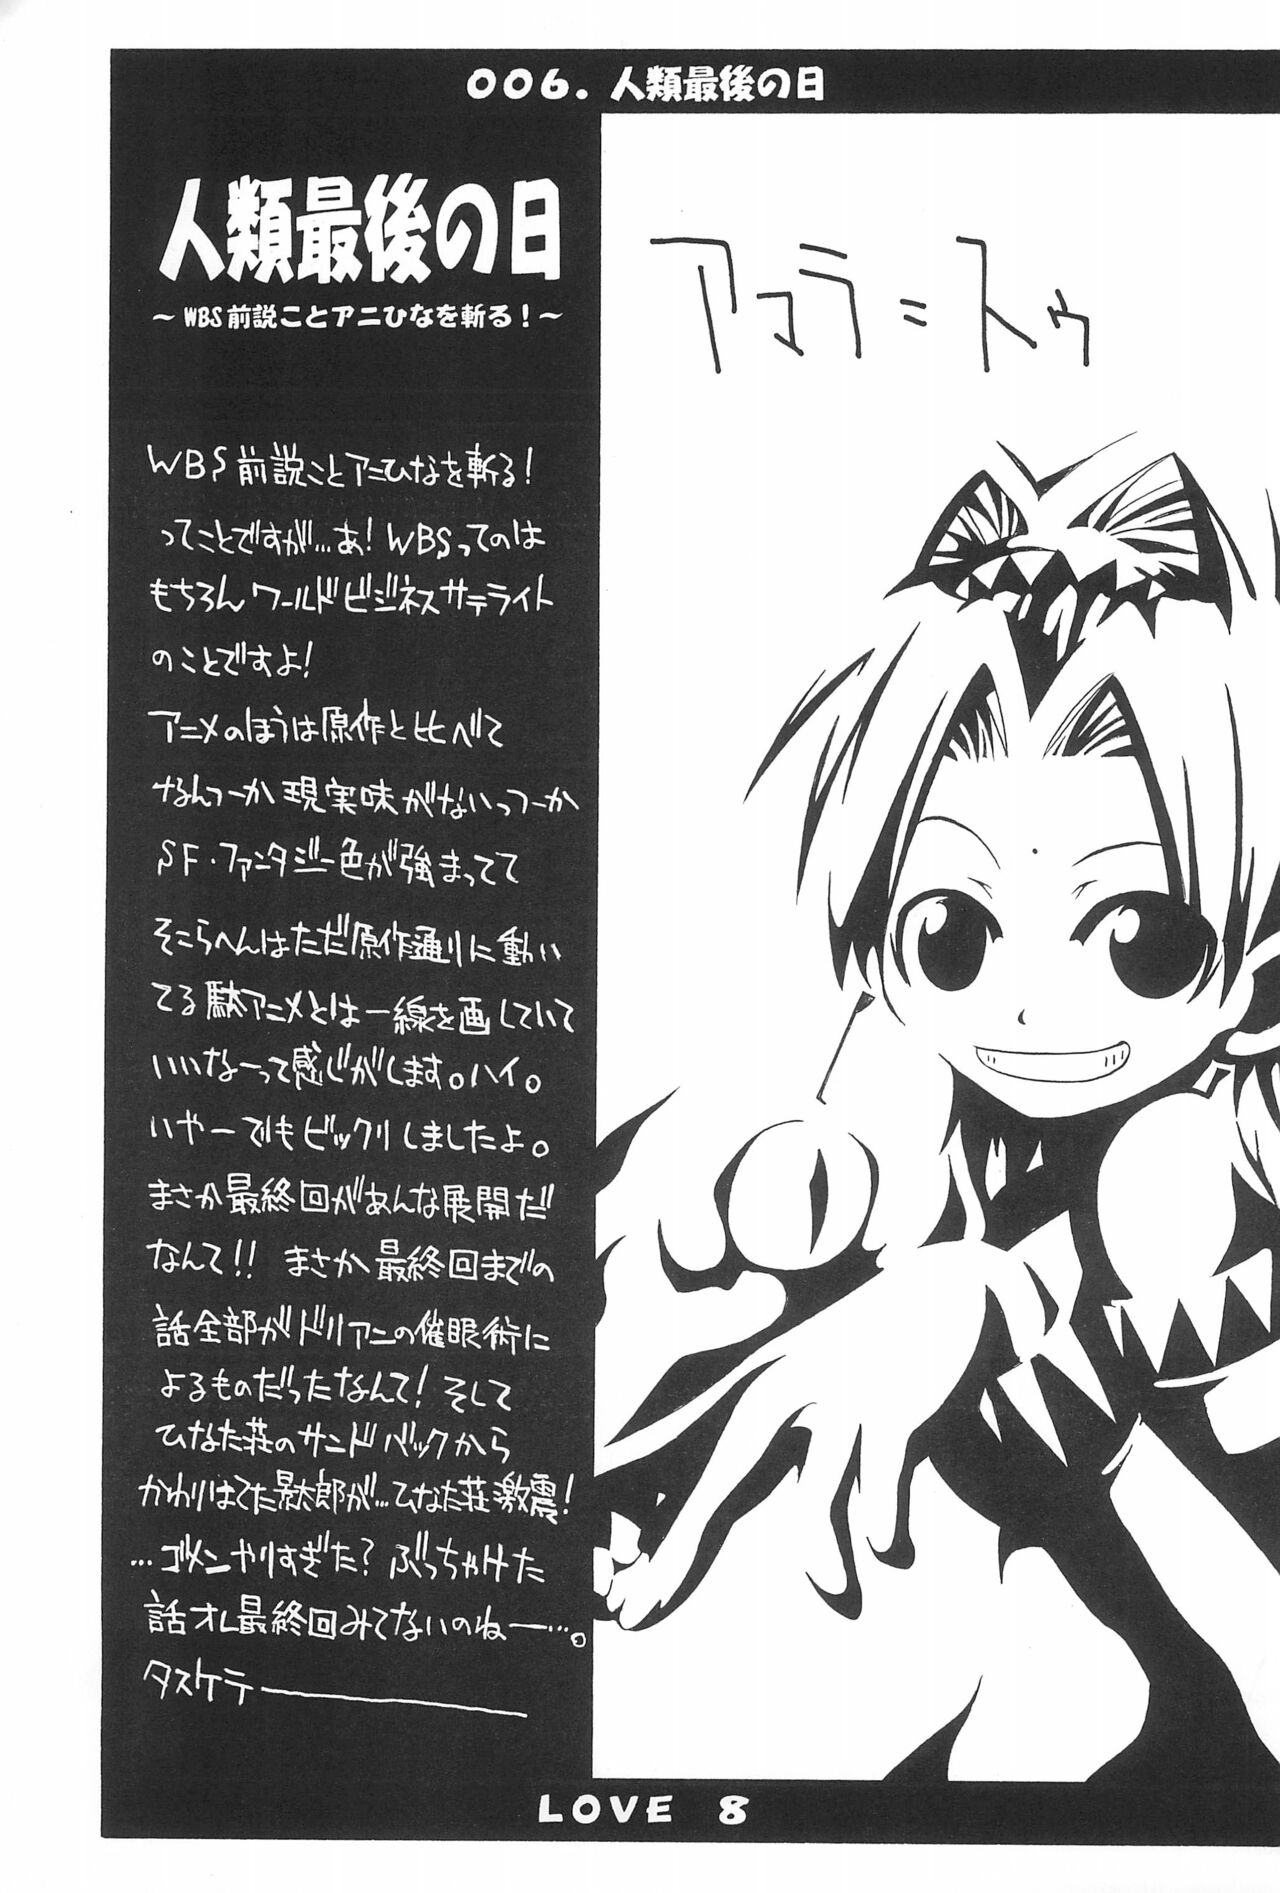 006. 人類最後の日
人類最後の日
～WBS前説ことアニひなを斬る！～
WBS前説ことアニひなを斬る！
ってことですが…あ！WBSってのは
もちろんワールドビジネスサテライト
のことですよ！
アニメのほうは原作と比べて
なんつーか現実味がないっつーか
SF・ファンタジー色が強まってて
そこらへんはただ原作通りに動い
てる駄アニメとは一線を画していて
いいなーって感じがします。ハイ。
いやーでもビックリしましたよ。
まさか最終回があんな展開だ
なんて！！まさか最終回までの
話全部がドリアニの催眠術に
よるものだったなんて！そして
ひなた荘のサンドバックから
かわりはてた景太郎が…ひなた荘激震！
…ゴメンやりすぎた？ぶっちゃけた
話オレ最終回みてないのねー…。
タスケテ―――
アマラ=トゥ
LOVE 8